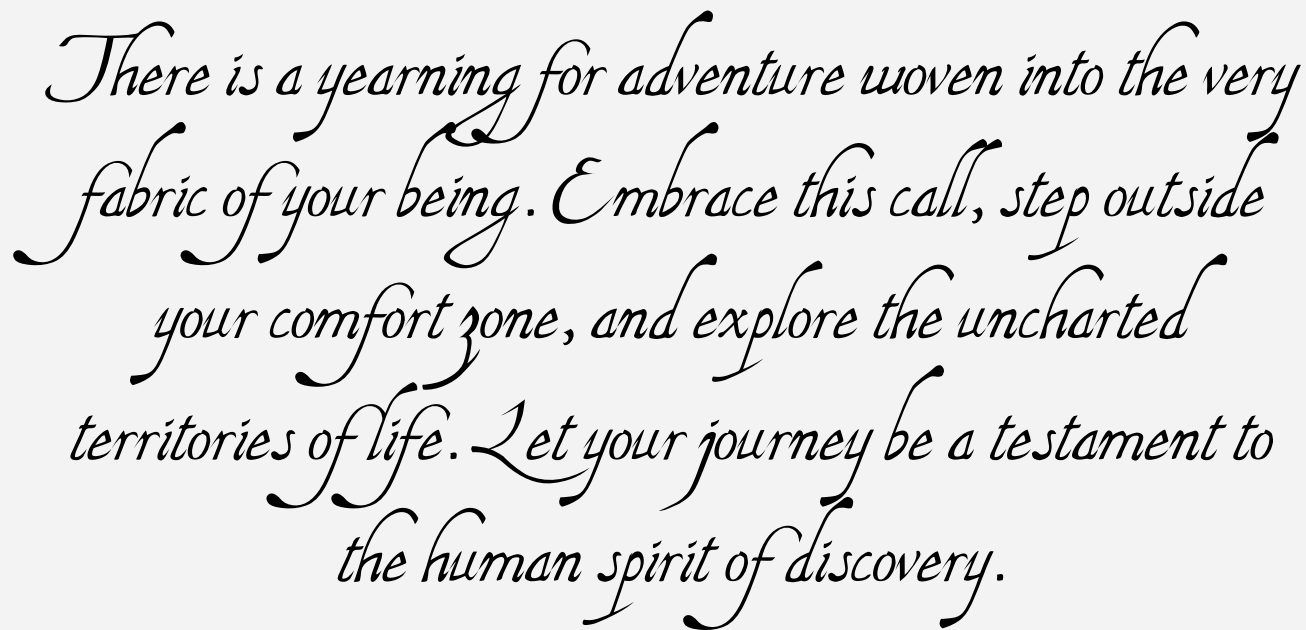 There is a yearning for adventure woven into the very
fabric of your being. Embrace this call, step outside
your comfort zone, and explore the uncharted
territories of life. Let your journey be a testament to
the human spirit of discovery.